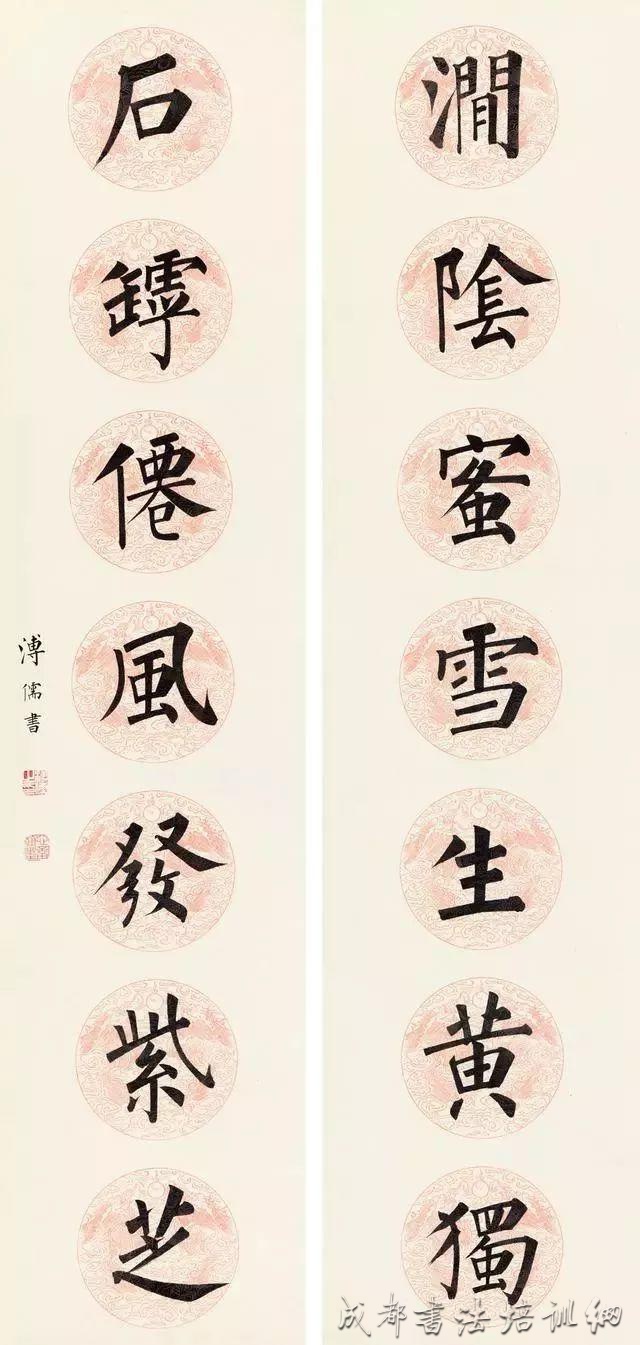 澗陰蜜雪生黄獨
石罅僊風發紫芝
溥儒書
成都書法培训網